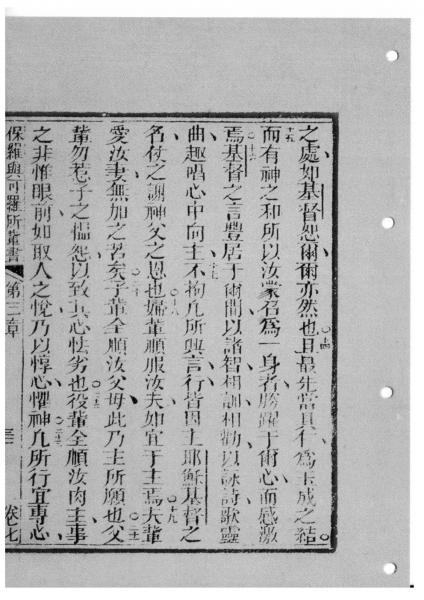 之處如基督恕爾爾亦然也且最先當具仁為玉成之結
十四
而有神之和所以汝蒙召為一身者勝躍于爾心而感激
十五
焉基督之言豐居于爾間以諸智相訓相勸以詠詩歌靈
十六
曲趣唱心中向主不拘凡所興言行皆因主耶穌基督之
十七
名仗之謝神父之恩也婦輩順服汝夫如宜于主焉夫輩
十八
十九
愛汝妻無加之苦矣子輩全順汝父母此乃主所願也父
二十
二十一
輩勿惹子之惱怨以致其心怯劣也役輩全順汝肉主事
二十二
之非惟眼前如取人之悅乃以惇心懼神凡所行宜專心
二十三
保羅與可羅所輩書 第三章 卷七